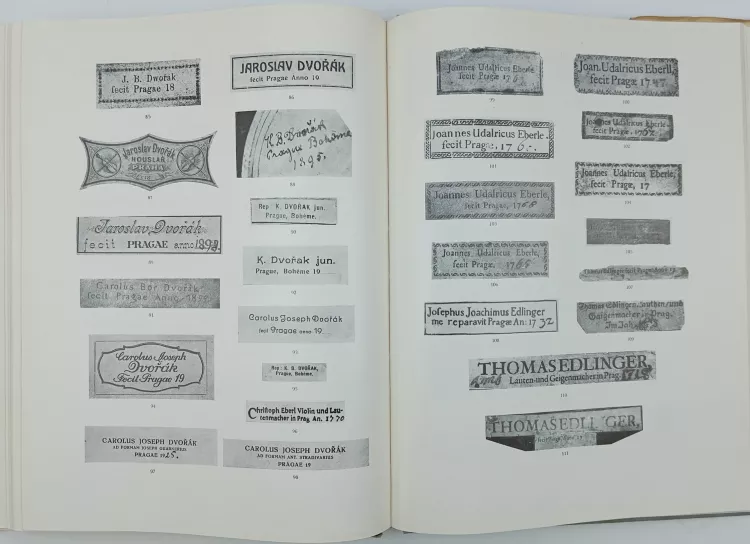 J. B. Dwořak
fecit Pragae 18
85
JAROSLAV DVOŘÁK
fecit Pragae Anno 19
86
Jaroslav Dvořák
HOUSLAŘ
PRAHA
87
K. B. Dvořák
Prague Bohême
1895.
88
Jaroslav Dvořák
fecit PRAGAE anno 189
89
Rep. K. DVOŘAK jun.
Prague, Bohême.
90
Carolus Bor Dvořák
fecit Pragae Anno 18
91
K. Dvořak jun.
Prague, Bohême 19
92
Carolus Joseph Dvořák
fecit Pragae anno 19
93
Carolus Joseph
Dvořák
Fecit Pragae 19
94
Rep. K. B. DVOŘÁK,
Prague, Bohême.
95
Christoph Eberl Violin und Lau-
tenmacher in Prag An. 1770
96
CAROLUS JOSEPH DVOŘÁK
AD FORMAM JOSEPH GUARNERII
PRAGAE 1925.
97
CAROLUS JOSEPH DVOŘÁK
AD FORMAM ANT. STRADIVARIUS
PRAGAE 19
98
Joannes Udalricus Eberle
fecit Pragæ 176
99
Joan. Udalricus Eberll,
fecit Pragæ 1747
100
Joannes Udalricus Eberle.
fecit Pragæ:, 176.
101
Joannes Udalricus Eberle,
fecit Pragæ, 175
102
Joannes Udalricus Eberle,
fecit Pragæ, 17
Joannes Udalricus Eberle,
fecit Pragæ, 1766
105
Joannes, Udalricus Eberle,
fecit Pragæ, 1765
106
107
Josephus Joachimus Edlinger
me reparavit Pragæ An: 1732
108
Thomas Edlinger, Lauten/und
Gaigenmacher in Prag.
Im Jahr
109
THOMAS EDLINGER,
Lauten-und Geigenmacher in Prag. 1715
110
THOMAS EDLINGER,
111